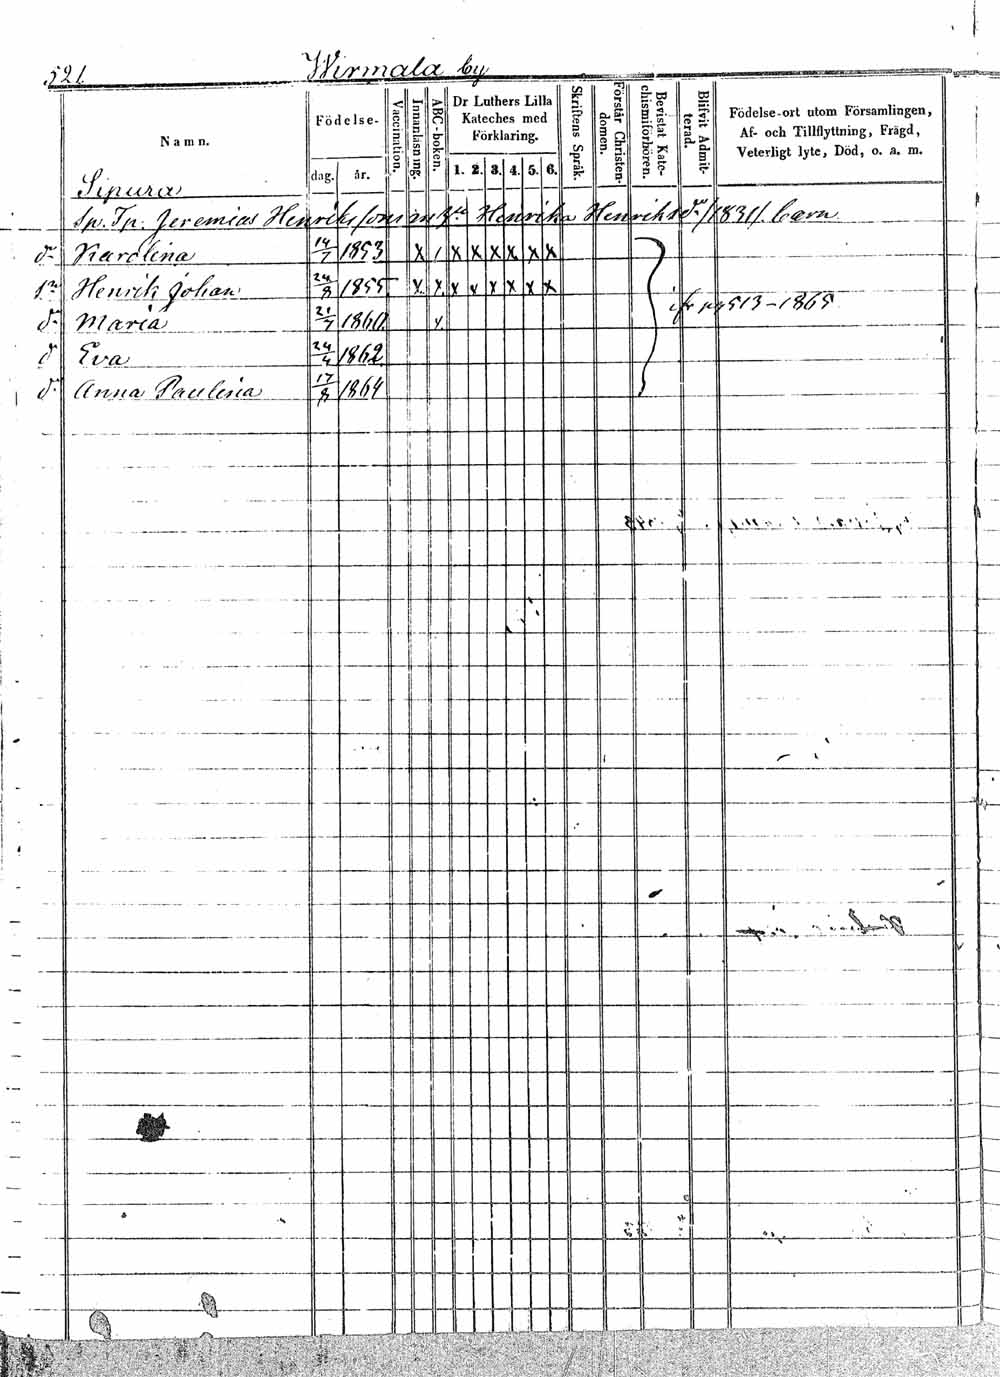 521. Wirmala by
Namn. Födelse- dag. år. Vaccination. Innanläsning. ABC-boken. Dr Luthers Lilla Kateches med Förklaring. 1. 2. 3. 4. 5. 6. Skriftens Språk. Förstår Christendomen. Bevistat Katechismiförhören. Blifvit Admitterad. Födelse-ort utom Församlingen, Af- och Tillflyttning, Frägd, Veterligt lyte, Död, o. a. m.
Sipura
Sp. Tp. Jeremias Henriksons m Henrika Henriksdr /1831/ barn
dr Karolina 14/7 1853 X / X X X X X X
sn Henrik Johan 24/8 1855 X X X X X X X X
513-1865
dr Maria 21/7 1860
d Eva 24/4 1862
dr Anna Paulina 17/8 1864